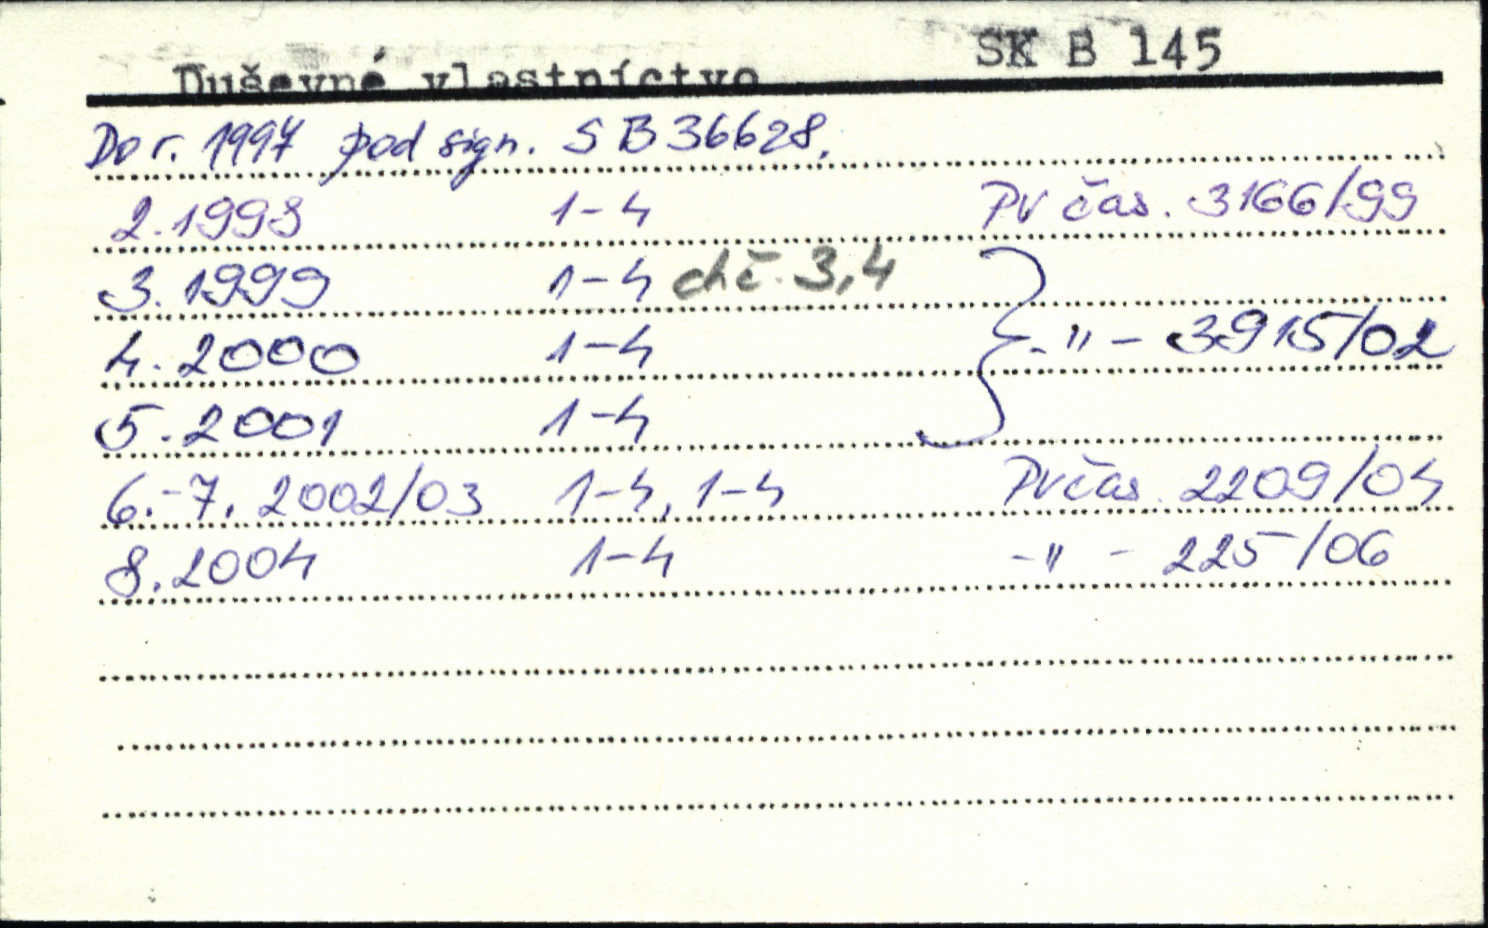 SK B 145
Duševné vlastníctvo
Do r. 1997 pod sign. SB 36628.
2. 1998 1-4 PV čas. 3166/99
3. 1999 1-4 chč. 3,4
4. 2000 1-4 -"- 3915/02
5. 2001 1-4
6.-7. 2002/03 1-4, 1-4 PV čas. 2209/04
8. 2004 1-4 -"- 225/06